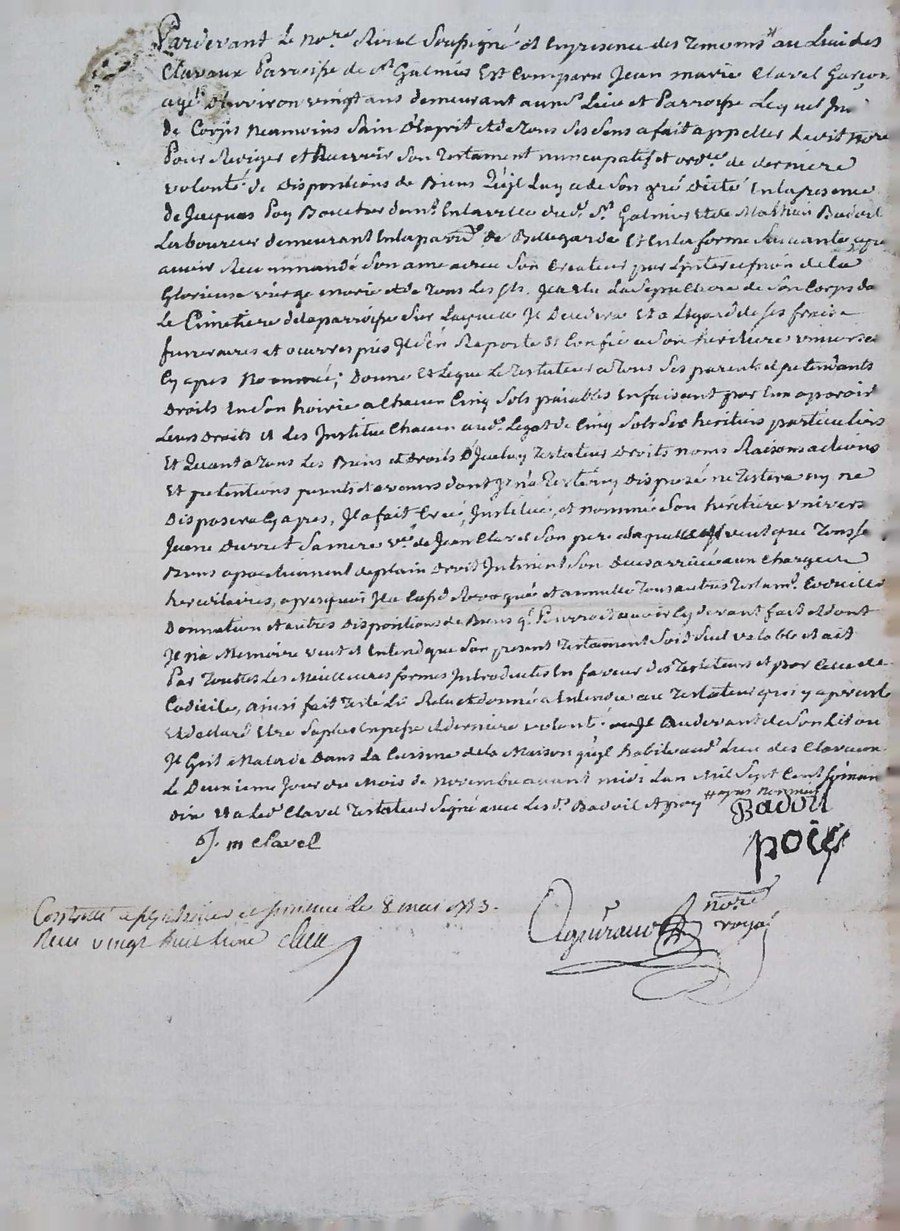 Pardevant Le no.re Roial Soussigné et En presence des Temoins au Lieu des
Clavaux Parroisse de St Galmier Est Comparu Jean marie Clavel Garçon
agé d'Environ vingt ans demeurant au m.e Lieu et Parroisse Lequel
de Corps neamoins Sain d'Esprit et de tous ses sens a fait appeller Ledit no.re
Pour Rediger et Recevoir Son Testament nuncupatif et ord.re de derniere
volonté de Dispositions de Biens Qu'il Luy a de Son gré Dicté En la presence
de Jacques Poy Boucher dem.t En la ville dud. St Galmier Et de Mathieu Badoil
Laboureur demeurant En la parr.e de Bellegarde Et En la forme Suivante apres
avoir Recommandé Son ame a dieu Son Createur par L'intercession de la
Glorieuse vierge marie et de Tous Les Sts. Il a Elu La Sepulture de Son Corps da
Le Cimetiere de la parroisse Sur Laquelle Il Decedera Et a L'egard de Ses fraix
funeraires et oeuvres pies Il s'En Raporte Et Confie a Son heritiere univers
Cy apres Nommée; Donne Et Legue Le Testateur a Tous Ses parents et pretendants
Droits En Son hoirie a Chacun Cinq Sols païables En faisant par Eux aparoir
Leurs Droits Et Les Institue Chacun aud. Legat de Cinq Sols Ses heritiers particuliers
Et Quant a Tous Les Biens et Droits D'Iceluy Testateur Droits noms Raisons actions
Et pretentions presents et avenirs dont Il n'a Testé ny Disposé ne Testera ny ne
Disposera Cy apres, Il a fait Créé, Institué, et nommé Son héritiere univers
Jeane Durret Sa mere v.e de Jean Clavel Son pere a laquelle Il veut que Tous Se
Biens apartiennent de plain Droit Incontinent Son Deces arrivé aux Charges
hereditaires, apres quoi Il a Cassé Revoqué et annullé Tous autres Testam.t Codicilles
Donnation et autres Dispositions de Biens q.l Pourroit avoir Cy devant fait et dont
Il n'a Memoire veut et Entend que Son present Testament Soit Seul valable et ait
Par Toutes Les Meilleures formes Introduites En faveur des Testateurs et par Celle de
Codicile, ainsi fait Testé Lu Relu et donné a Entendre au Testateur qui y a persisté
Et declaré Etre Sa plus Expresse et derniere volonté au devant de Son Lit ou
Il Git Malade Dans La Cuisine de la Maison qu'il habite aud. Lieu des Clavaux
Le Deuxieme Jour du Mois de Novembre avant midi L'an Mil Sept Cent Soixan
dix Et a Led. Clavel Testateur Signé avec Les d. Badoil et poy
apres nommés
Badoil
J m Clavel
poiy
no.re
royal
Controllé a le 8 mai 1773.
Recu vingt huit